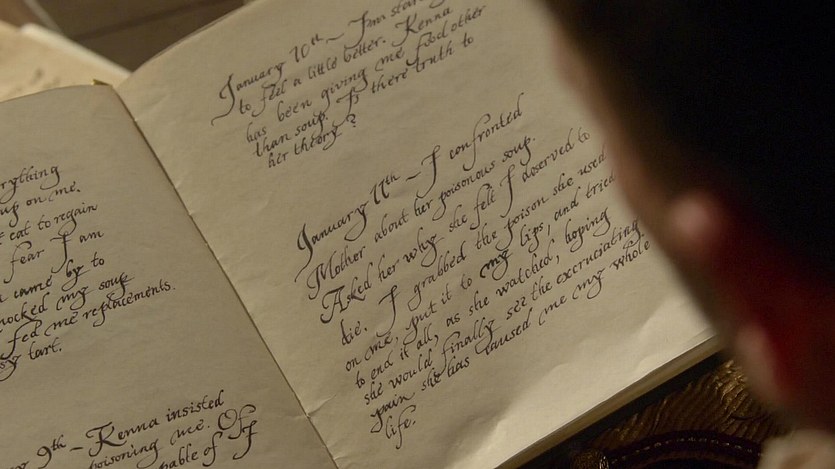 rything
up on me.
eat to regain
fear I am
came by to
nocked my soup
fed me replacements.
tart.
9th – Kenna insisted
poisoning me. Off
pable of
January 10th – I'm star
to feel a little better. Kenna
has been giving me food other
than soup. Is there truth to
her theory?
January 11th – I confronted
Mother about her poisonous soup.
Asked her why she felt I deserved to
die. I grabbed the poison she used
on me, put it to my lips, and tried
to end it all, as she watched, hoping
she would finally see the excruciating
pain she has caused me my whole
life.